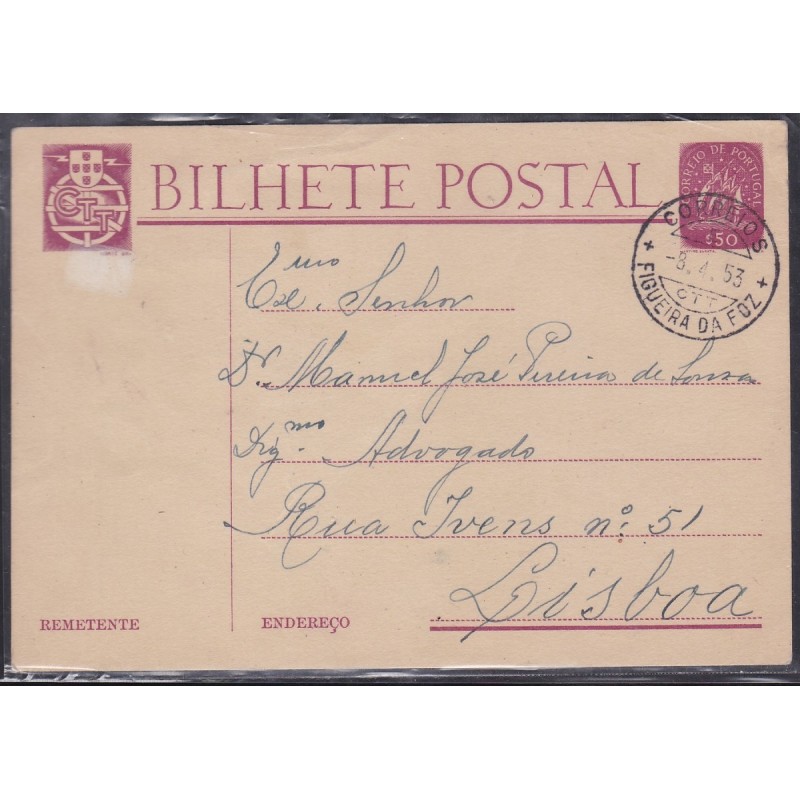 CTT
BILHETE POSTAL
CORREIO DE PORTUGAL
$50
CORREIOS
-8.4.53
CTT
FIGUEIRA DA FOZ
Exmo. Senhor
Dr. Manuel José Pereira de Sousa
Digmo. Advogado
Rua Ivens nº. 51
Lisboa
REMETENTE
ENDEREÇO